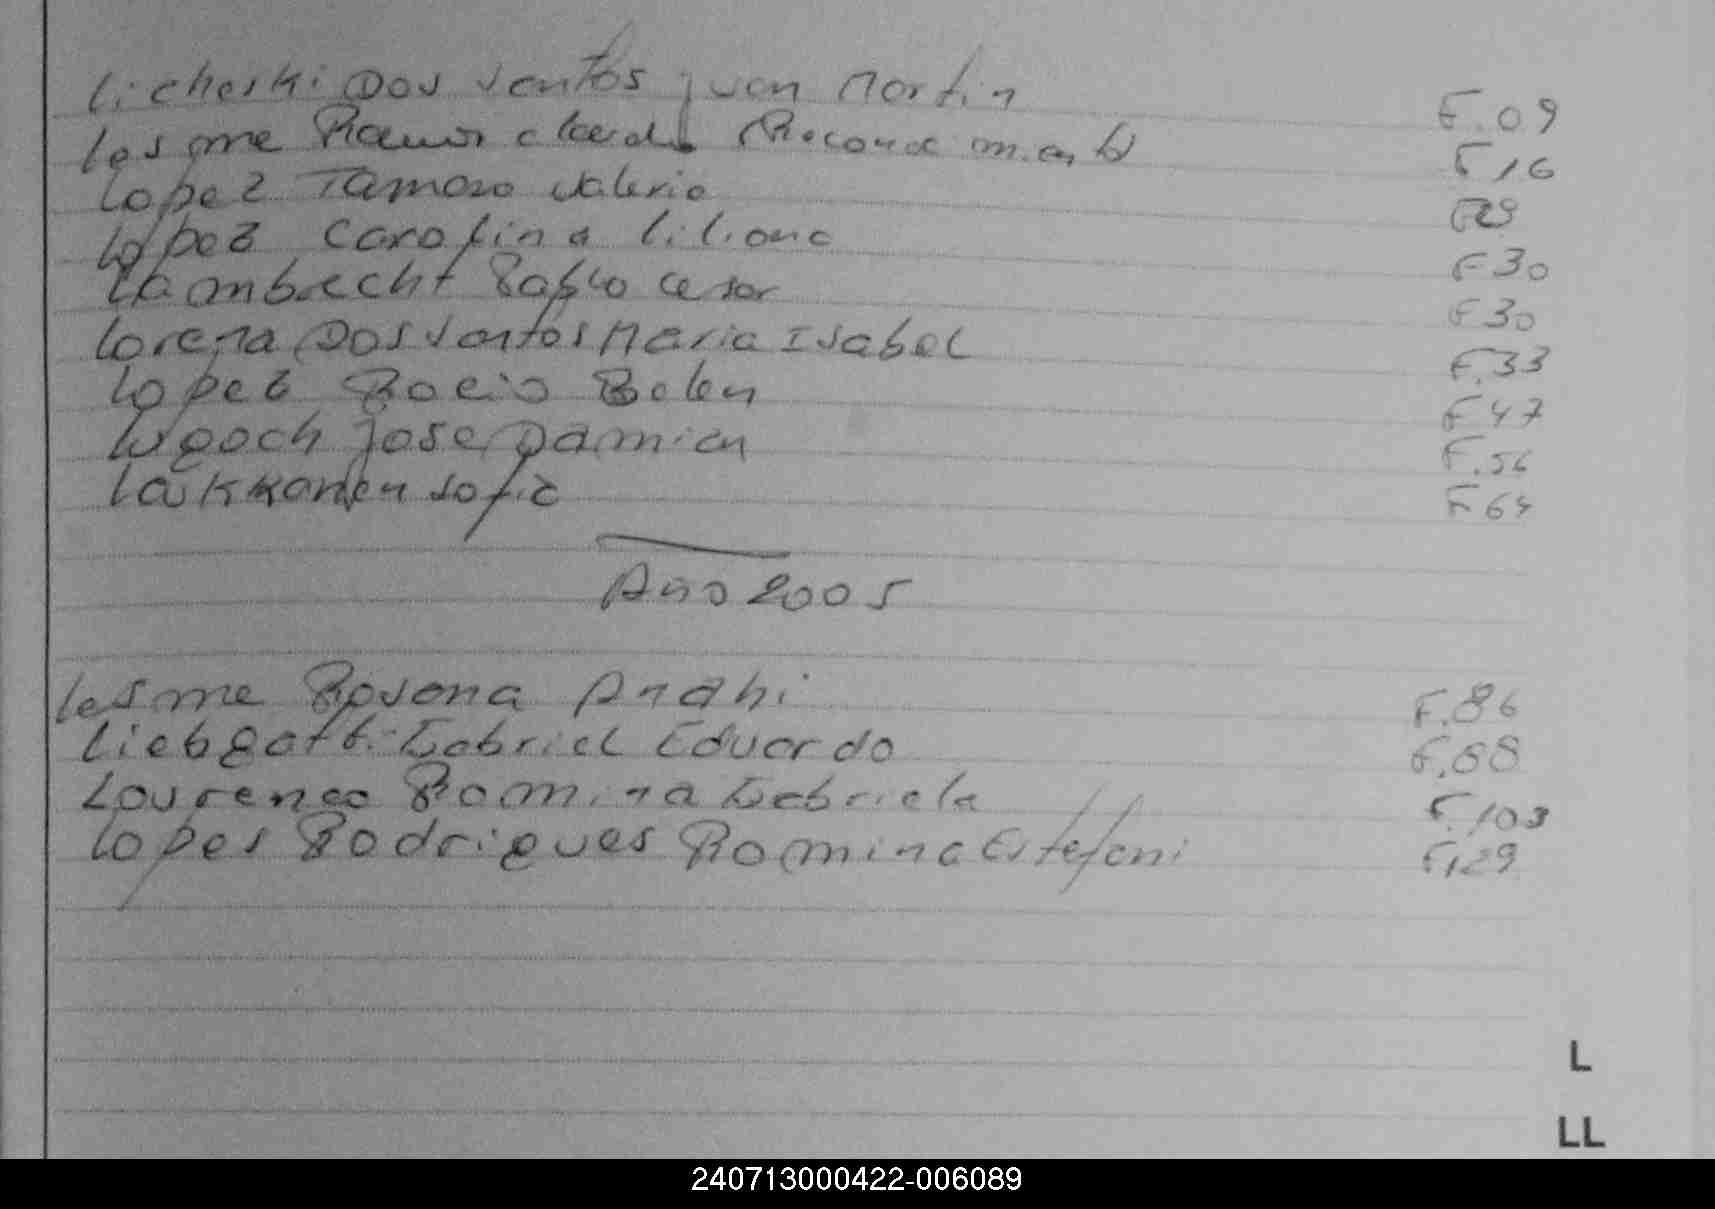 Licheski Dos Santos Juan Martin F.09
Lesme Ramir Reconocimiento F 16
Lopez Tamara Valeria F29
Lopez Carolina Liliana F30
Lambrecht Pablo Cesar F30
Lorena Dos Santos Maria Isabel F.33
Lopez Rocio Belen F47
jose Damian F.56
Laukkanen sofia F64
Año 2005
Lesme Rosana Anahi F.86
Liebgott Gabriel Eduardo F.88
Lourenco Romina Gabriela F.103
Lopes Rodrigues Romina Estefani F129
L
LL
240713000422-006089